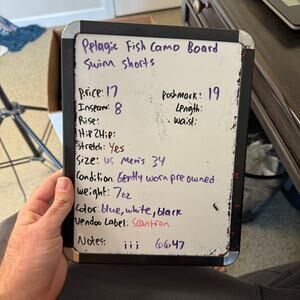 Pelagic Fish Camo Board
Swim Shorts
Price: 17 Poshmark: 19
Inseam: 8 Length:
Rise: Waist:
Hip2Hip:
Stretch: Yes
Size: US Men's 34
Condition: Gently worn pre owned
Weight: 7oz
Color: blue, white, black
Vendoo Label: Scantron
Notes: iii 6647